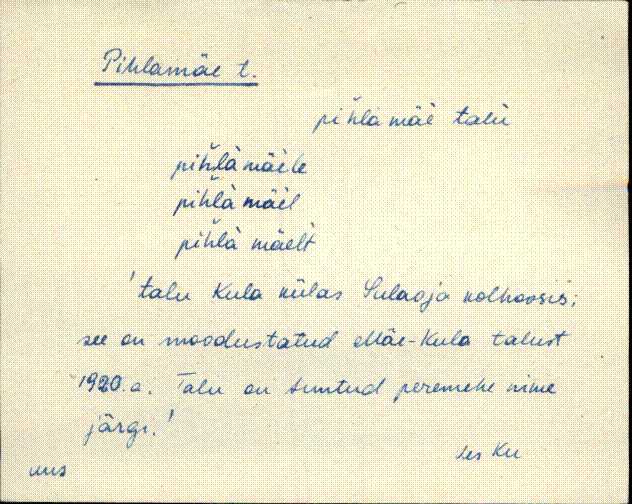 Pihlamäe t.
pìhlà mäè talù
pìhlà mäèle
pìhlà mäèl
pìhlà mäèlt
'talu Kula külas Sulaoja kolhoosis;
see on moodustatud Mäe-Kula talust
1920.a. Talu on tuntud peremehe nime
järgi.'
Ku
uus